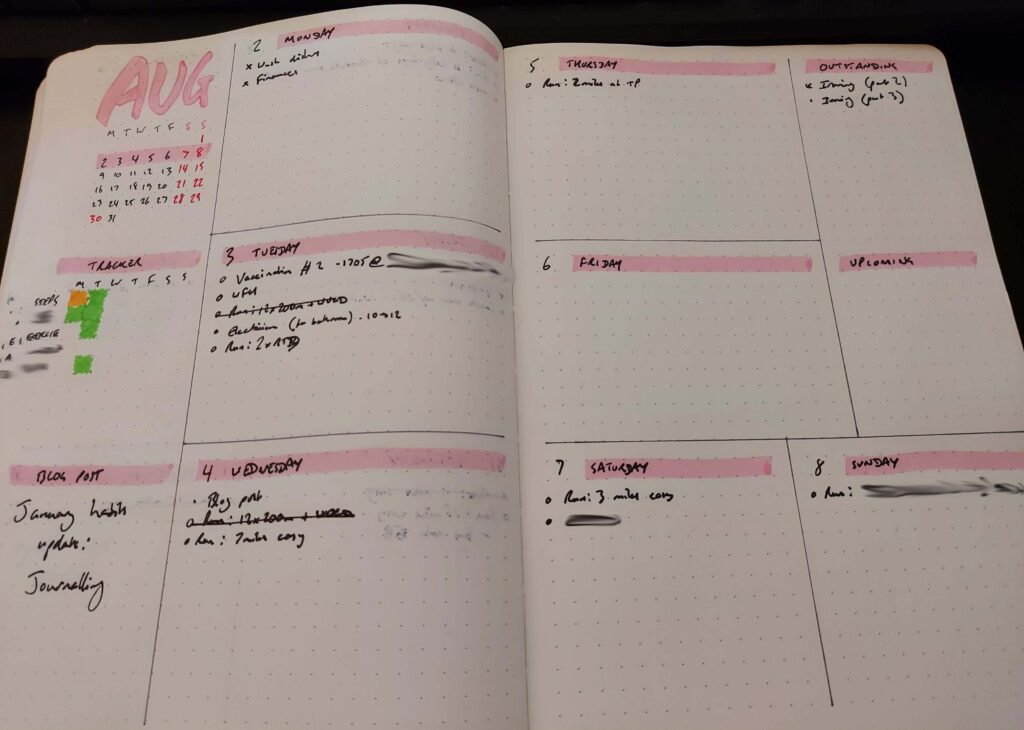 AUG
M T W T F S S
1
2 3 4 5 6 7 8
9 10 11 12 13 14 15
16 17 18 19 20 21 22
23 24 25 26 27 28 29
30 31
TRACKER
M T W T F S S
STEPS
BLOG POST
January habits
update:
Journalling
2 MONDAY
x Wash dishes
x Finances
3 TUESDAY
o Vaccination #2 - 1705 @
o WFH
o Run: 12x200m + WUCD
o Electrician (in bathroom) - 10-12
o Run: 2x
4 WEDNESDAY
· Blog post
o Run: 12x200m + WUCD
o Run: 7 miles easy
5 THURSDAY
o Run: 2 miles at TP
OUTSTANDING
x Ironing (part 2)
· Ironing (part 3)
6 FRIDAY
UPCOMING
7 SATURDAY
o Run: 3 miles easy
8 SUNDAY
o Run: